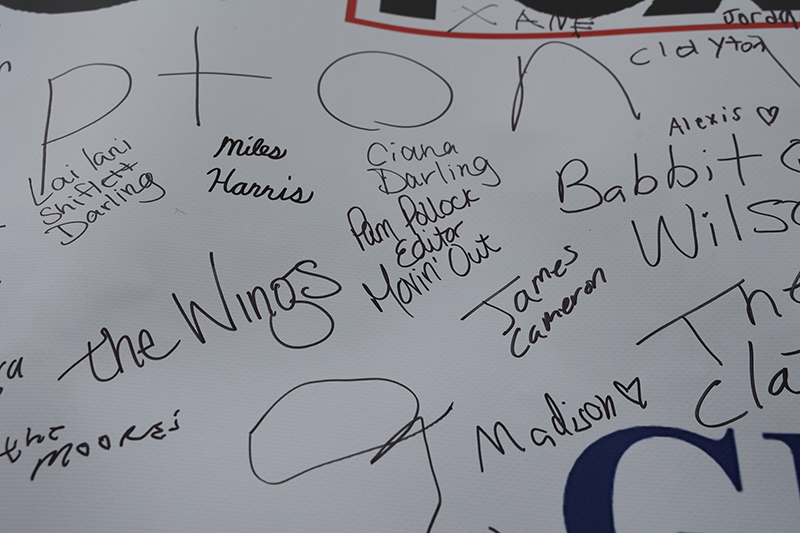 XANE
Jordan
Clayton
Alexis ♡
Lailani
Shiflett
Darling
Miles
Harris
Ciana
Darling
Pam Pollock
Editor
Movin' Out
Babbit
Wilso
James
Cameron
the Wings
The
Cla
Madison ♡
the
MOORES